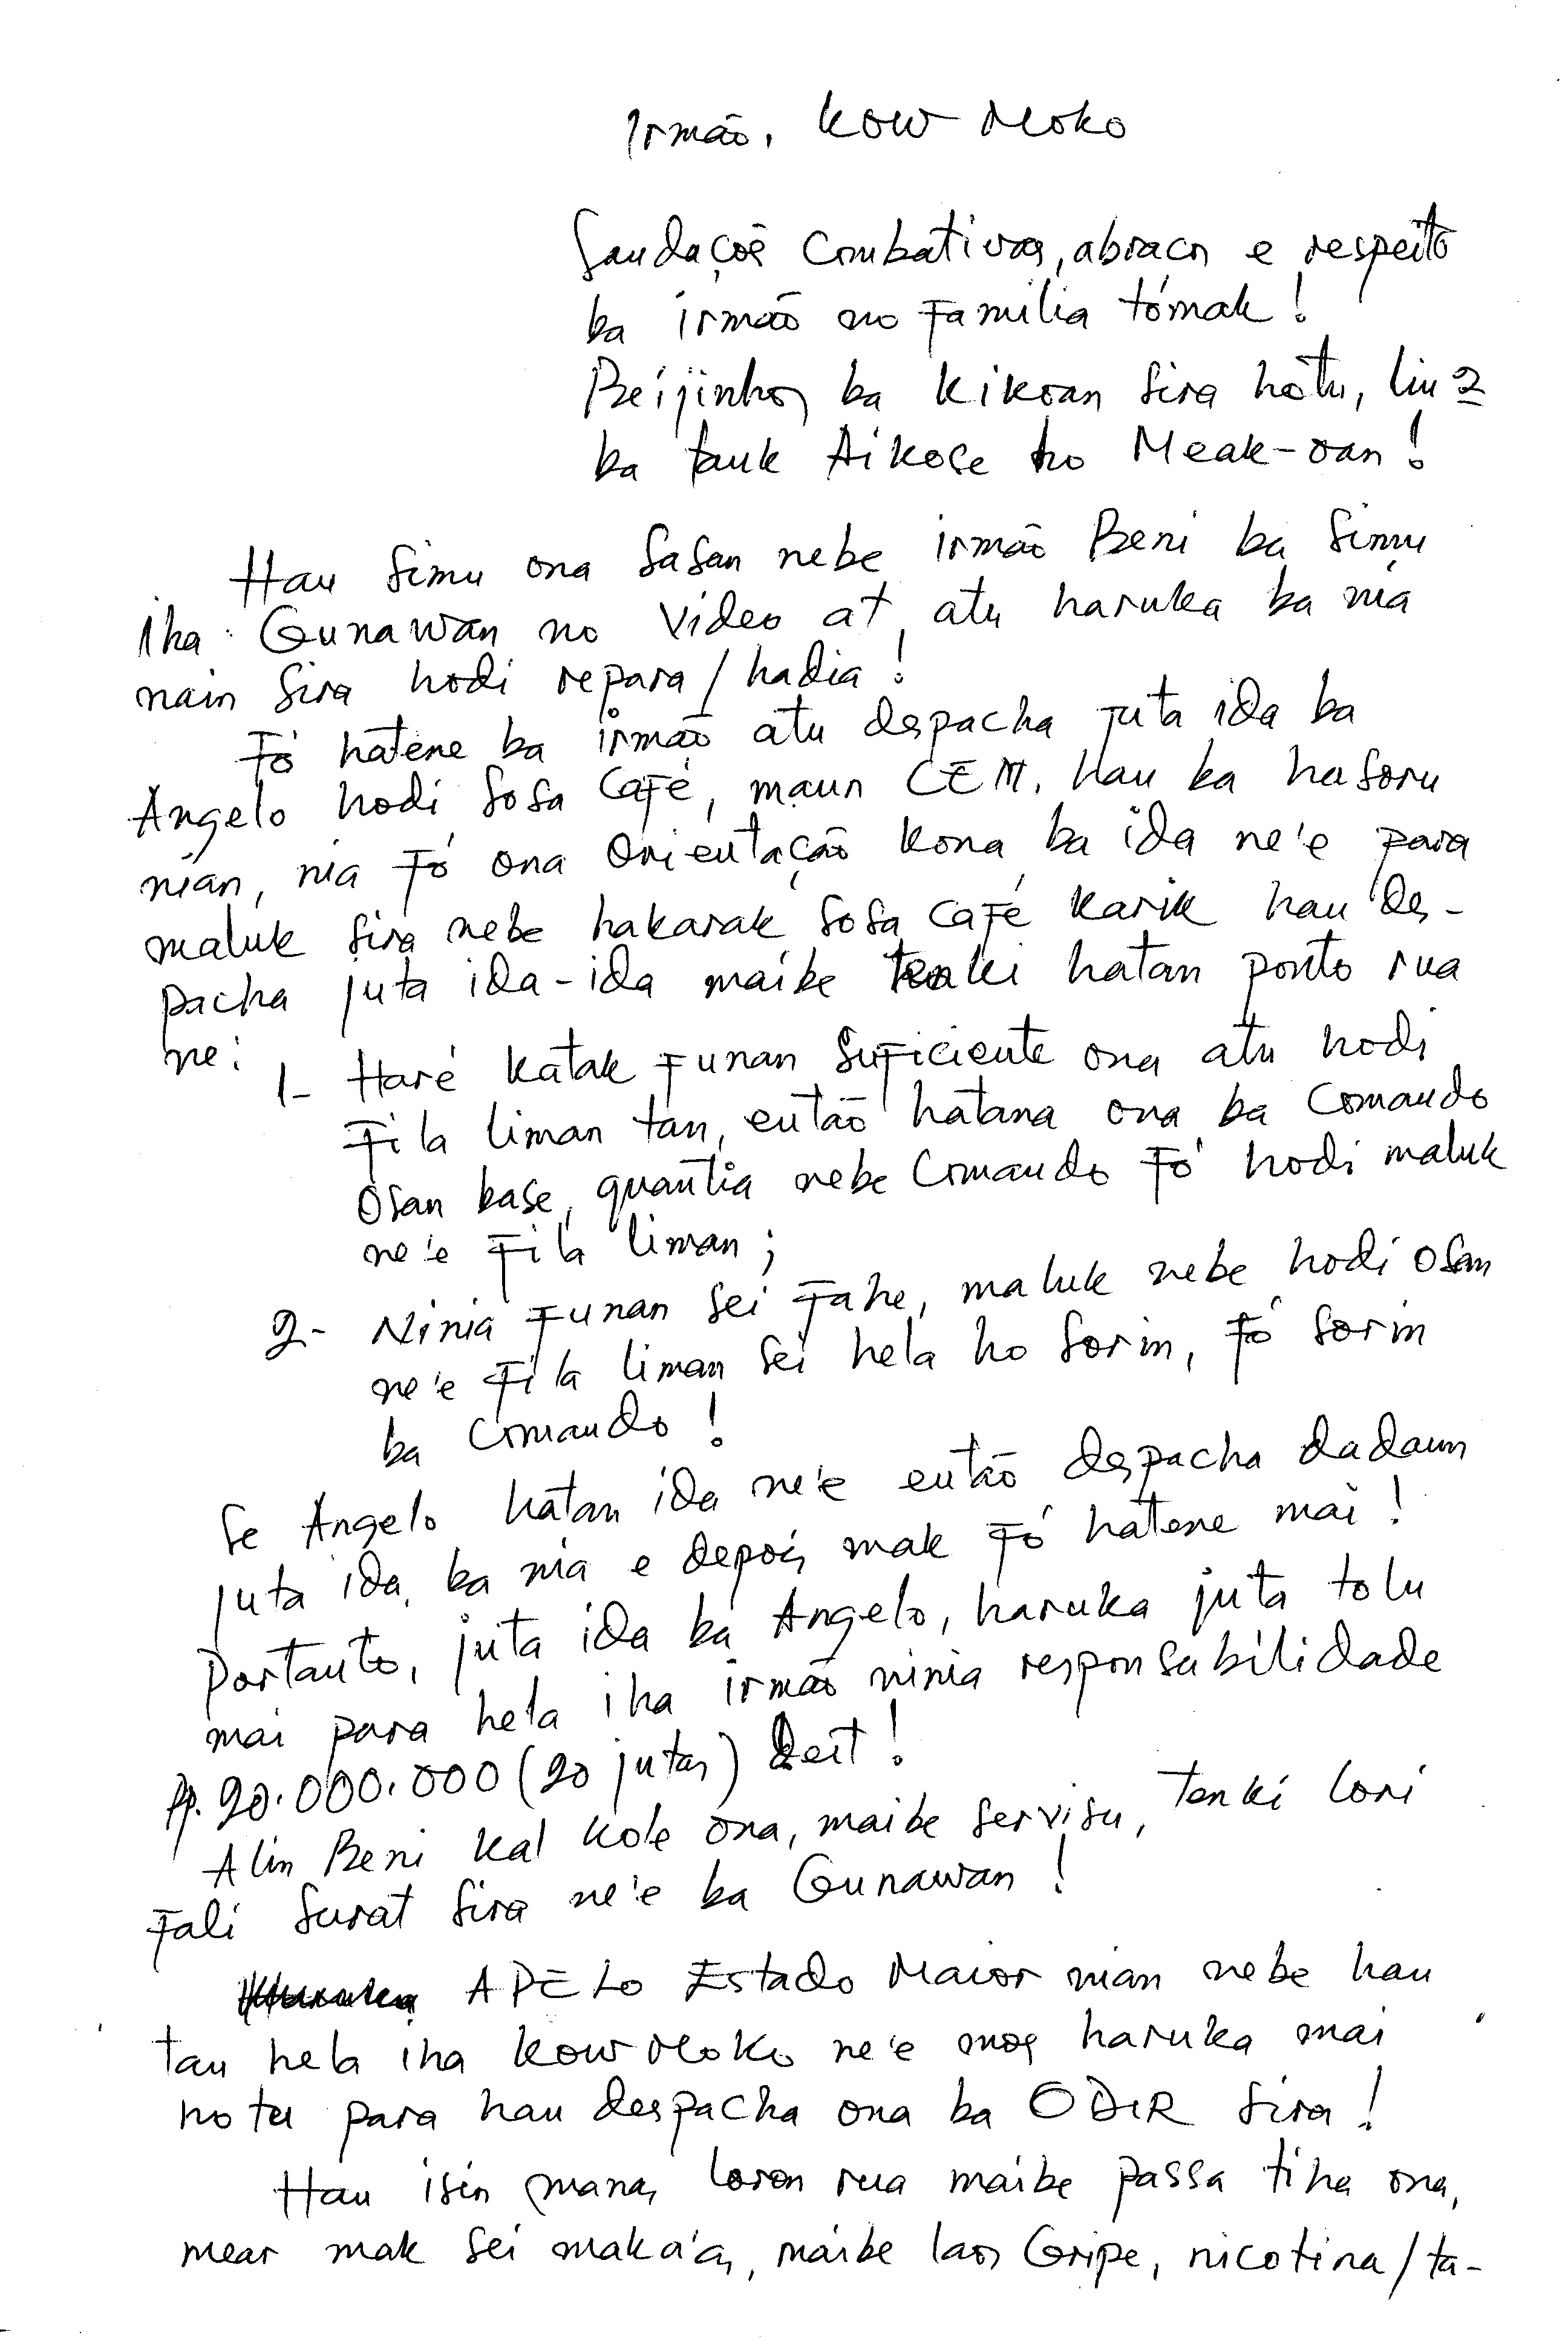 Irmão, Kow Moko
Saudaçoẽ Combativas, abraços e respeito
ba irmão no Família tómak!
Beijinhos ba Kikoan Sira hotu, liu2
ba tauk Aikose ho Meak-oan!
Hau Simu ona Sasan nebe irmão Beni ba Simu
iha Gunawan no Video at, atu haruka ba nia
nain Sira hodi repara/hadia!
Fó hatene ba irmão atu despacha juta ida ba
Angelo hodi Sosa Café, maun CEM. Hau ba hasoru
nian, nia Fó ona Orientação Kona ba ida ne'e para
maluk sira nebe hakarak Sosa Café Karik hau des-
pacha juta ida-ida maibe tenki hatan ponto rua
ne:
1- Haré Katak Funan Suficiente ona atu hodi
Fila liman tan, então hatana ona ba Comando
Osan base, quantia nebe Comando Fó hodi maluk
ne'e Fila liman;
2- Ninia Funan Sei Fahe, maluk nebe hodi Osan
ne'e Fila liman Sei hela ho Sorin, Fó Sorin
ba Comando!
Se Angelo hatan ida ne'e então despacha dadaun
juta ida ba nia e depois mak Fó hatene mai!
Portanto, juta ida ba Angelo, haruka juta tolu
mai para hela iha irmão ninia responsabilidade
Rp. 20.000.000 (20 jutas) Deit!
Alin Beni Kal Kole ona, maibe Servisu, tenki lori
Fali Surat Sira ne'e ba Gunawan!
APELO Estado Maior nian nebe hau
tau hela iha Kow Moko ne'e mos haruka mai
hotu para hau despacha ona ba ODIR Sira!
Hau isin manas loron rua maibe passa tiha ona,
mear mak Sei maka'as, maibe laos Gripe, nicotina/ta-